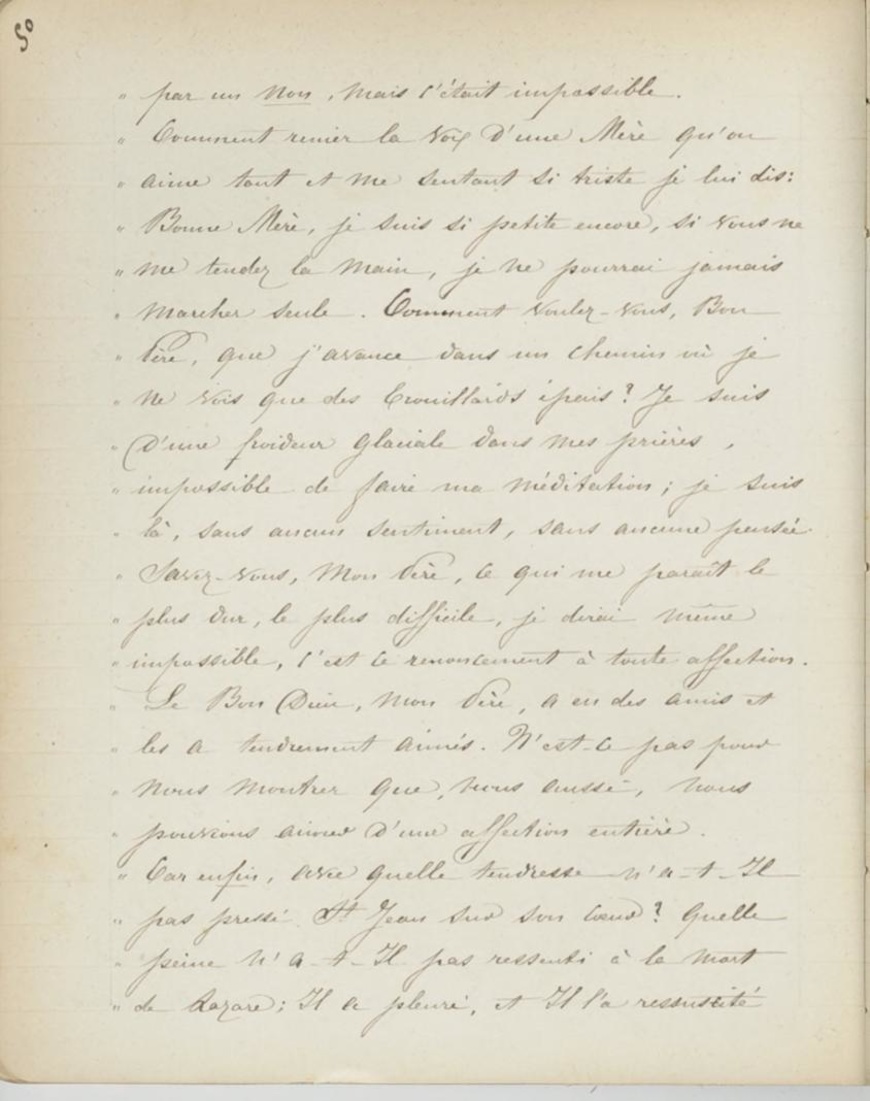 50
" par un non, mais c'était impossible.
" Comment renier la voix d'une Mère qu'on
" aime tant et me sentant si triste je lui dis:
" Bonne Mère, je suis si petite encore, si vous ne
" me tendez la main, je ne pourrai jamais
" marcher seule. Comment voulez-vous, Bon
" Père, que j'avance dans un chemin où je
" ne vois que des brouillards épais? Je suis
" d'une froideur glaciale dans mes prières,
" impossible de faire ma méditation; je suis
" là, sans aucun sentiment, sans aucune pensée.
" Savez-vous, mon Père, ce qui me paraît le
" plus dur, le plus difficile, je dirai même
" impossible, c'est ce renoncement à toute affection.
" Le Bon Dieu, mon Père, a eu des amis et
" les a tendrement aimés. N'est-ce pas pour
" nous montrer que, nous aussi, nous
" pouvions aimer d'une affection entière.
" Car enfin, avec quelle tendresse n'a-t-Il
" pas pressé St Jean sur son cœur? Quelle
" peine n'a-t-Il pas ressenti à la mort
" de Lazare; Il a pleuré, et Il l'a ressuscité